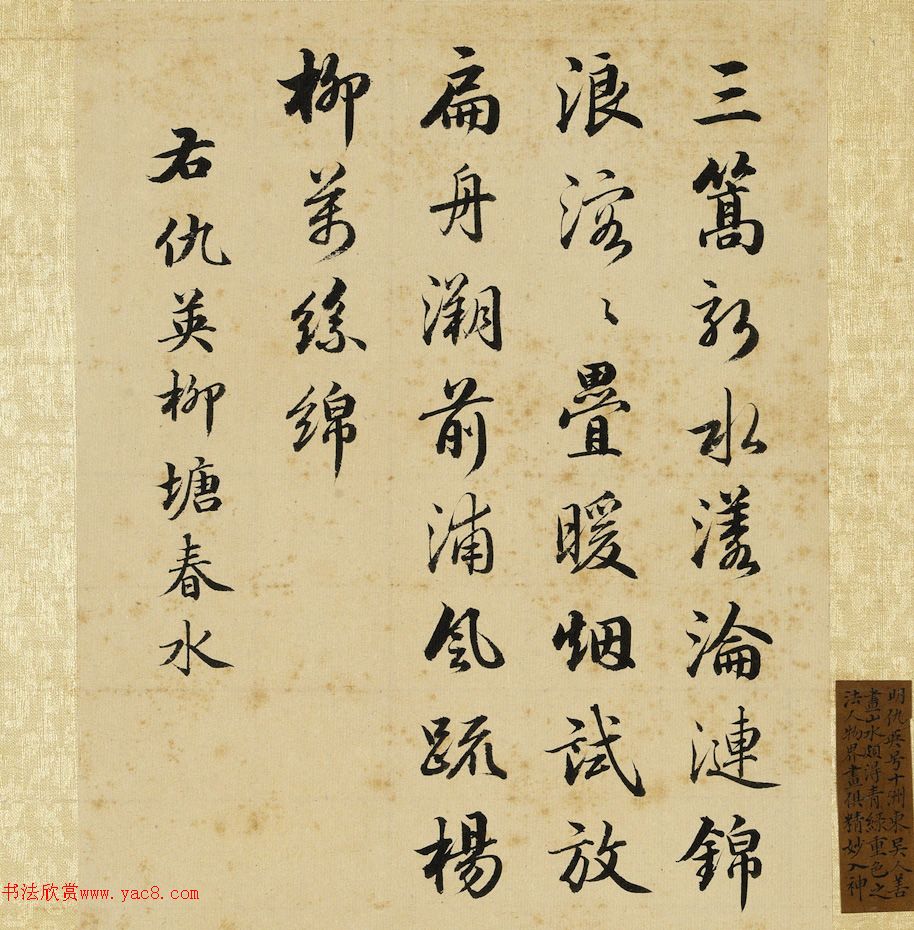 三篙新水漾淪漣錦
浪溶〻疊暖烟試放
扁舟溯前浦風疏楊
柳萬絲綿
右仇英柳塘春水
明仇英号十洲東吴人善
畫山水頗得青綠重色之
法人物界畫俱精妙入神
书法欣赏www.yac8.com